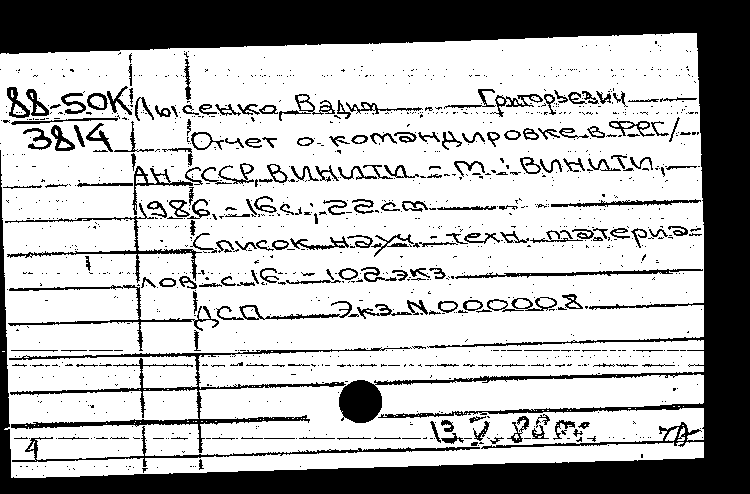 88-50К Лысенко, Вадим Григорьевич
3814 Отчет о командировке в ФРГ/
АН СССР, ВИНИТИ. - М.: ВИНИТИ,
1986. - 16 с.; 22 см
Список науч.-техн. материа=
лов: с. 16. - 102 экз.
ДСП Экз. N 000008
13.V.88
4